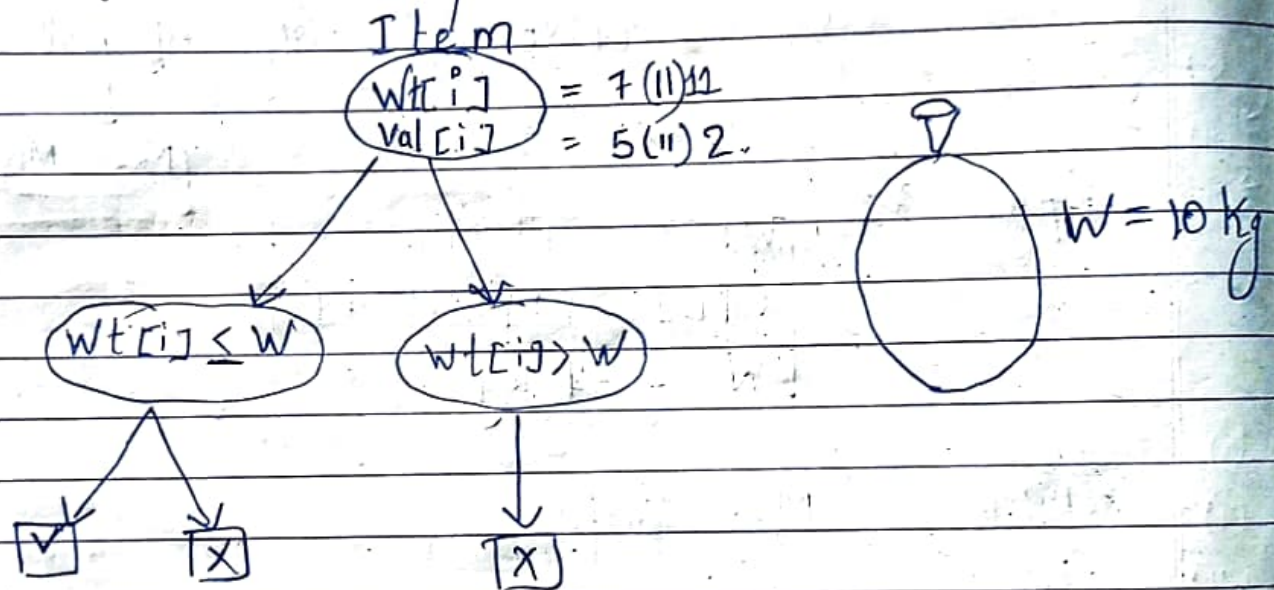 Item
Wt[i] = 7 (11) 11
Val[i] = 5 (11) 2.
W = 10 kg
Wt[i] ≤ W
Wt[i] > W
✓
X
X